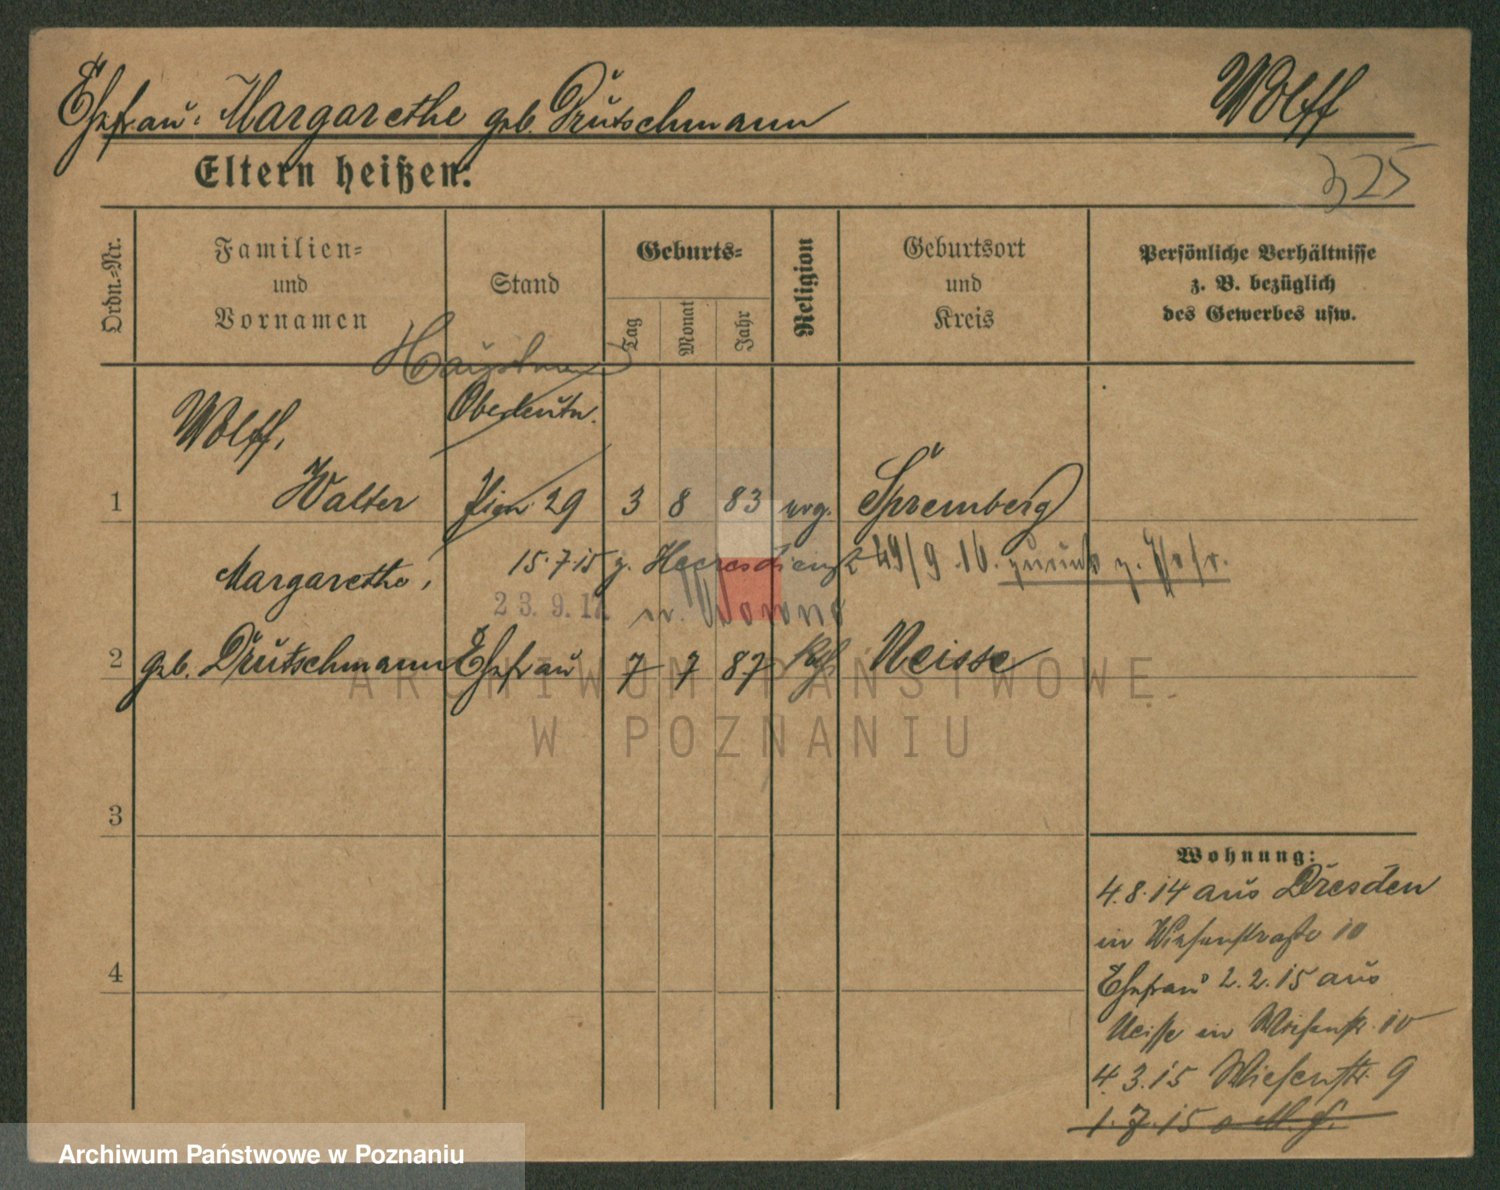 Ehefrau: Margarethe geb. Drutschmann
Wolff
325
Eltern heißen:
Ordn.-Nr.
Familien-
und
Vornamen
Stand
Geburts-
Tag
Monat
Jahr
Religion
Geburtsort
und
Kreis
Persönliche Verhältnisse
z. B. bezüglich
des Gewerbes usw.
Hauptm
Wolff,
1 Walter Pion. 29 3 8 83 evg. Spremberg
15.7.15 z. Heeresdienst 29/9.16. zurück z.
Margarethe,
23.9.17.
2 geb. Drutschmann Ehefrau 7 7 87 kath Neisse
ARCHIWUM PAŃSTWOWE
W POZNANIU
3
4
Wohnung:
4.8.14 aus Dresden
in Wiesenstraße 10
Ehefrau 2.2.15 aus
Neisse in Wiesenstr. 10
4.3.15 Wiesenstr. 9
1.7.15
Archiwum Państwowe w Poznaniu